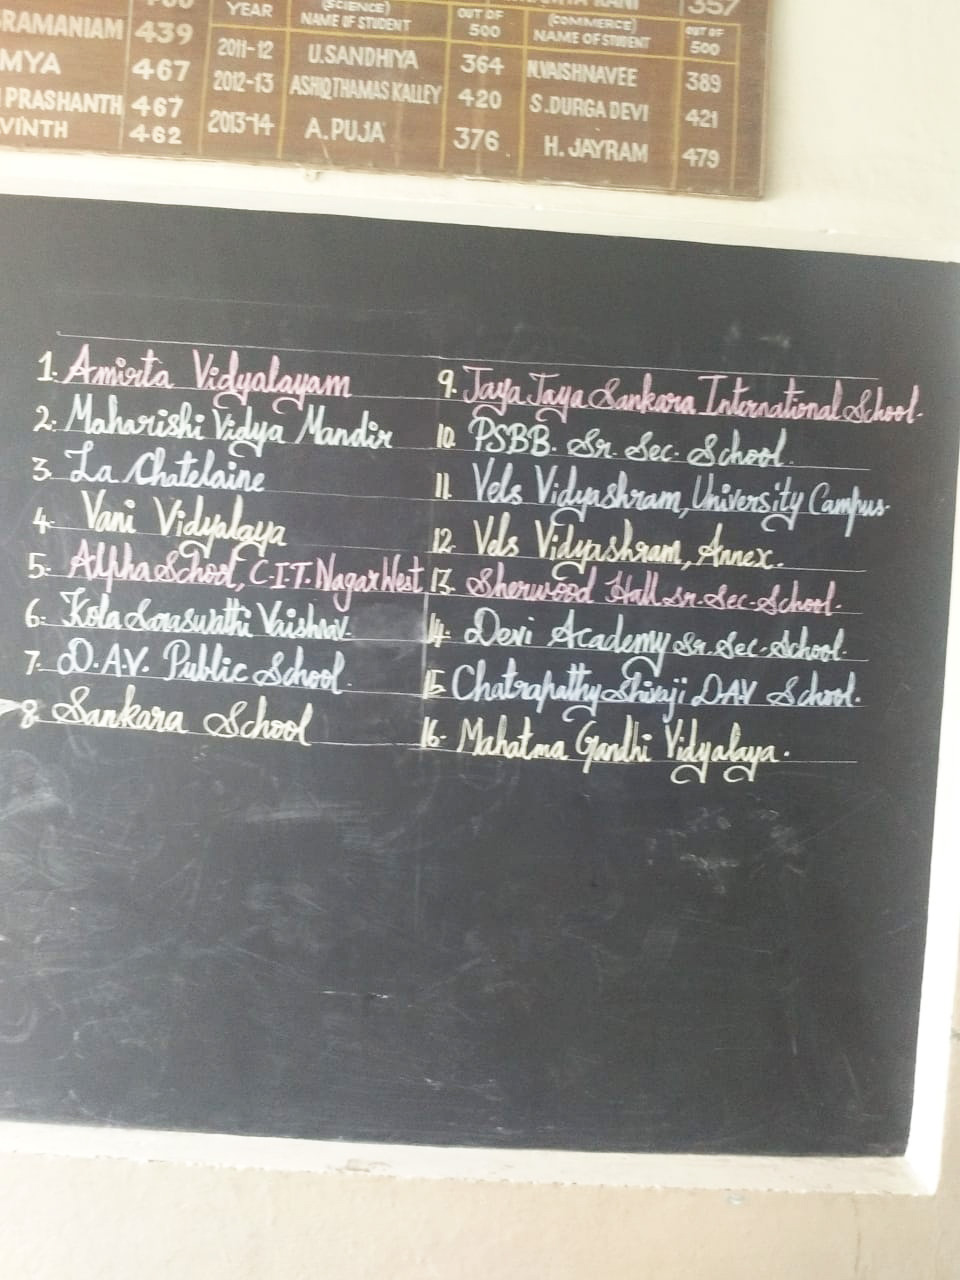 357
RAMANIAM 439
YEAR (SCIENCE) NAME OF STUDENT OUT OF 500 (COMMERCE) NAME OF STUDENT OUT OF 500
MYA 467 2011-12 U.SANDHIYA 364 N.VAISHNAVEE 389
PRASHANTH 467 2012-13 ASHIQTHAMAS KALLEY 420 S.DURGA DEVI 421
VINTH 462 2013-14 A.PUJA 376 H. JAYRAM 479
1. Amirta Vidyalayam
2. Maharishi Vidya Mandir
3. La Chatelaine
4. Vani Vidyalaya
5. Alpha School, C.I.T. Nagar West
6. Kola Saraswathi Vaishnav.
7. D.A.V. Public School.
8. Sankara School
9. Jaya Jaya Sankara International School.
10. PSBB. Sr. Sec. School.
11. Vels Vidyashram, University Campus.
12. Vels Vidyashram, Annex.
13. Sherwood Hall Sr. Sec. School.
14. Devi Academy Sr. Sec. School.
15. Chatrapathy Shivaji DAV School.
16. Mahatma Gandhi Vidyalaya.